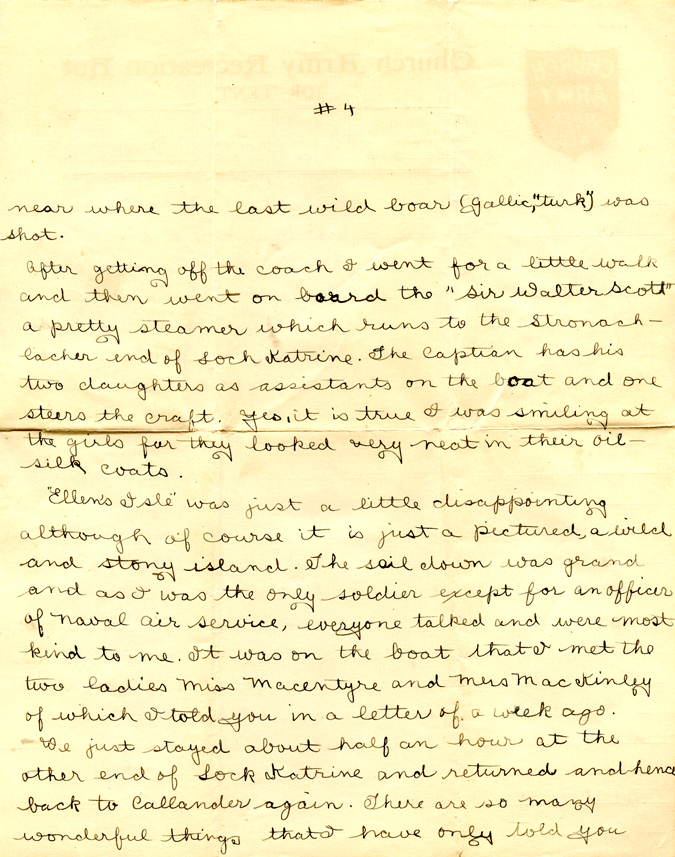 # 4
near where the last wild boar (gallic, "turk") was
shot.
After getting off the coach I went for a little walk
and then went on board the "Sir Walter Scott"
a pretty steamer which runs to the Stronach-
lacher end of Loch Katrine. The Captian has his
two daughters as assistants on the boat and one
steers the craft. Yes, it is true I was smiling at
the girls for they looked very neat in their oil-
silk coats.
"Ellen's Isle" was just a little disappointing
although of course it is just a pictured, a wild
and stony island. The sail down was grand
and as I was the only soldier except for an officer
of Naval air service, everyone talked and were most
kind to me. It was on the boat that I met the
two ladies Miss Macentyre and Mrs MacKinley
of which I told you in a letter of a week ago.
We just stayed about half an hour at the
other end of Lock Katrine and returned and hence
back to Callander again. There are so many
wonderful things that I have only told you